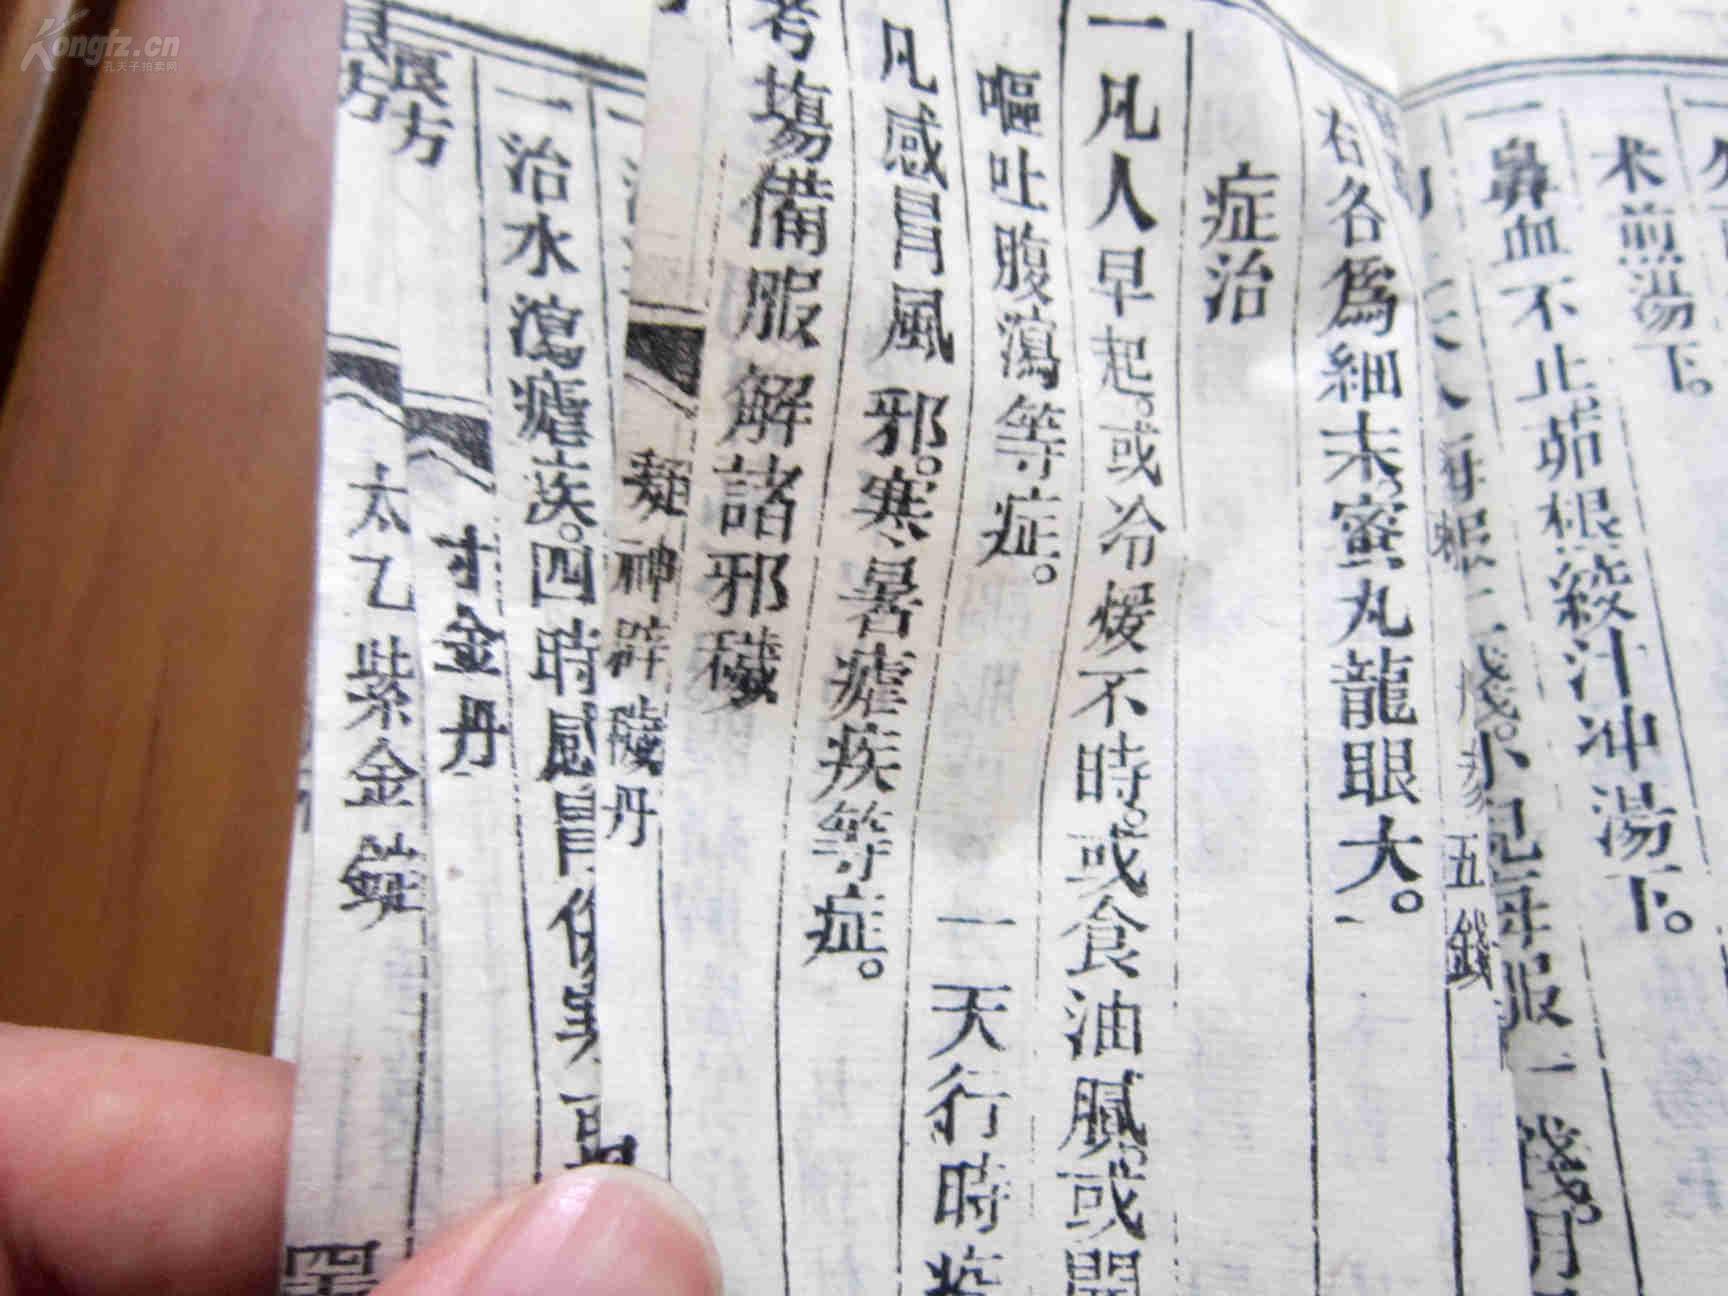 术煎湯下。
一鼻血不止茆根絞汁冲湯下。
每服一錢。小兒每服一錢。月
五錢
右各爲細末蜜丸龍眼大。一
症治
一凡人早起。或冷煖不時。或食油膩或開
嘔吐腹瀉等症。
一天行時疫
凡感冒風邪。寒暑瘧疾等症。
考塲備服解諸邪穢
凝神辟穢丹
一治水瀉瘧疾。四時感冒傷寒
良方
寸金丹
良方
太乙紫金錠
四
Kongfz.cn
孔夫子拍卖网